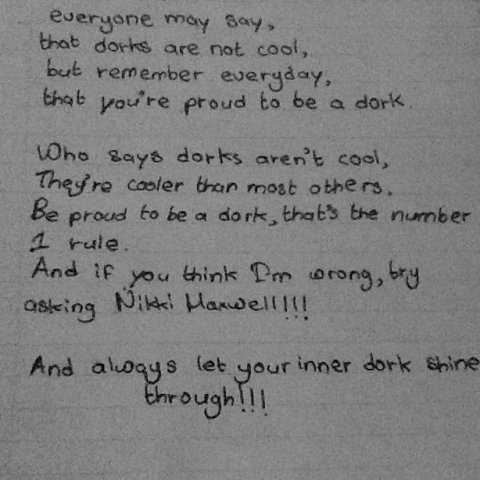 everyone may say,
that dorks are not cool,
but remember everyday,
that you're proud to be a dork.
Who says dorks aren't cool,
They're cooler than most others.
Be proud to be a dork, that's the number
1 rule.
And if you think I'm wrong, try
asking Nikki Maxwell!!!
And always let your inner dork shine
through!!!